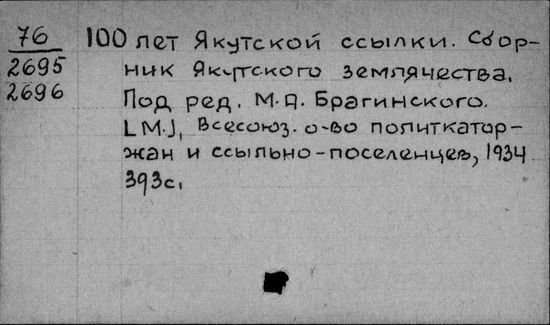 76
2695
2696
100 лет Якутской ссылки. Сбор-
ник Якутского землячества.
Под ред. М.А. Брагинского.
[М.], Всесоюз. о-во политкатор-
жан и ссыльно-поселенцев, 1934
393с.